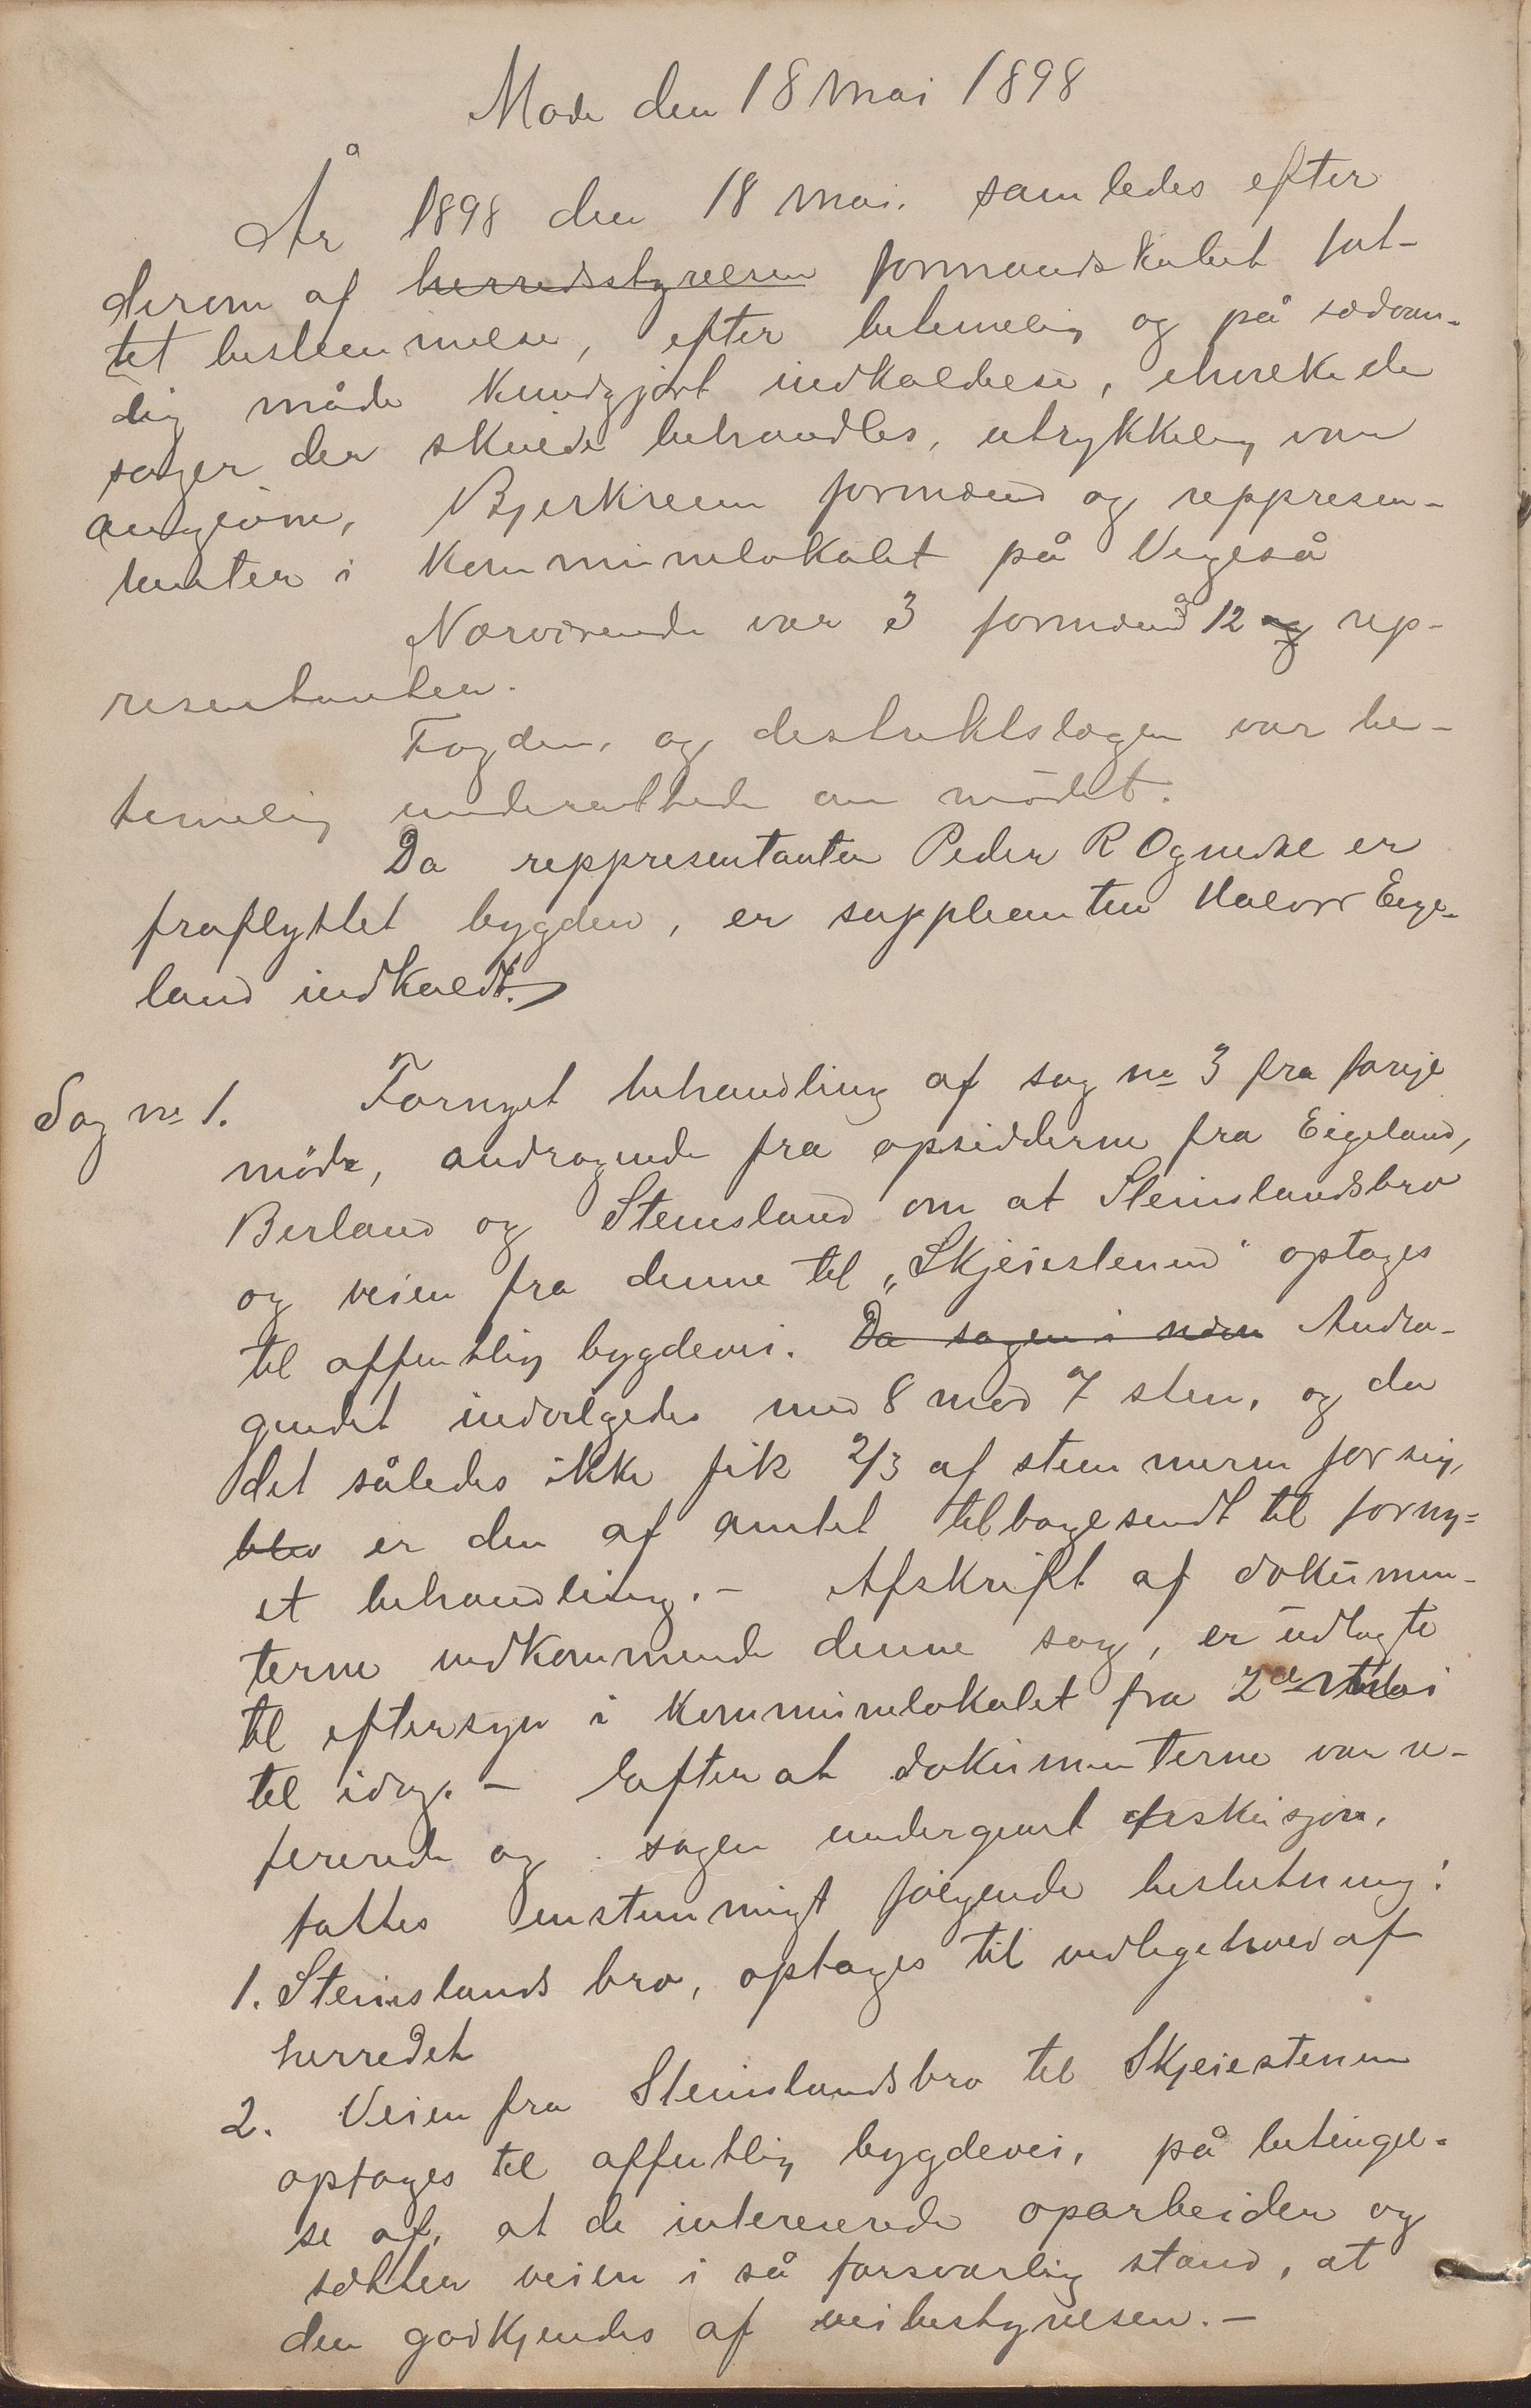 Møde den 18 mai 1898
År 1898 den 18 mai. samledes efter
derom af herredsstyrelsen formandskabet fat-
tet bestemmelse, efter betimelig og på sædvan-
lig måde kundgjort indkaldelse, ihvilke de
sager der skulde behandles, utrykkelig var
angivne, Bjerkreim formænd og reppresen-
tanter i Kommunelokalet på Vigeså
Nærværende var 3 formænd og 12 og rep-
resentanter.
Fogden, og destriktslægen var be-
timelig underrettede om mødet.
Da reppresentanten Peder R Ognedal er
fraflyttet bygden, er supplianten Halvor Eige-
land indkaldt.
Sag no 1. Fornyet behandling af sag no 3 fra forrige
møde, andragende fra opsidderne fra Eigeland,
Birland og Steinsland om at Steinslandsbro
og veien fra denne til „Skjeiestenen“ optages
til offentlig bygdevei. Da sagen i Andra-
gendet indvilgedes med 8 mod 7 stem, og da
det således ikke fik 2/3 af stemmerne for sig,
blev er den af amtet tilbagesendt til forny=
et behandling. - Afskrift af dokumen-
terne vedkommende denne sag, er udlagte
til eftersyn i Kommunelokalet fra 2de mai
til idag. - Efter at dokumenterne var re-
fererede og sagen undergaaet diskusjon,
fattes enstemmigt følgende beslutning:
1. Steinslands bro, optages til vedligehold af
herredet
2. Veien fra Steinslandsbro til Skjeiestenen
optages til offentlig bygdevei, på betingel-
se af, at de intereserede oparbeider og
sætter veien i så forsvarlig stand, at
den godkjendes af veibestyrelsen. -